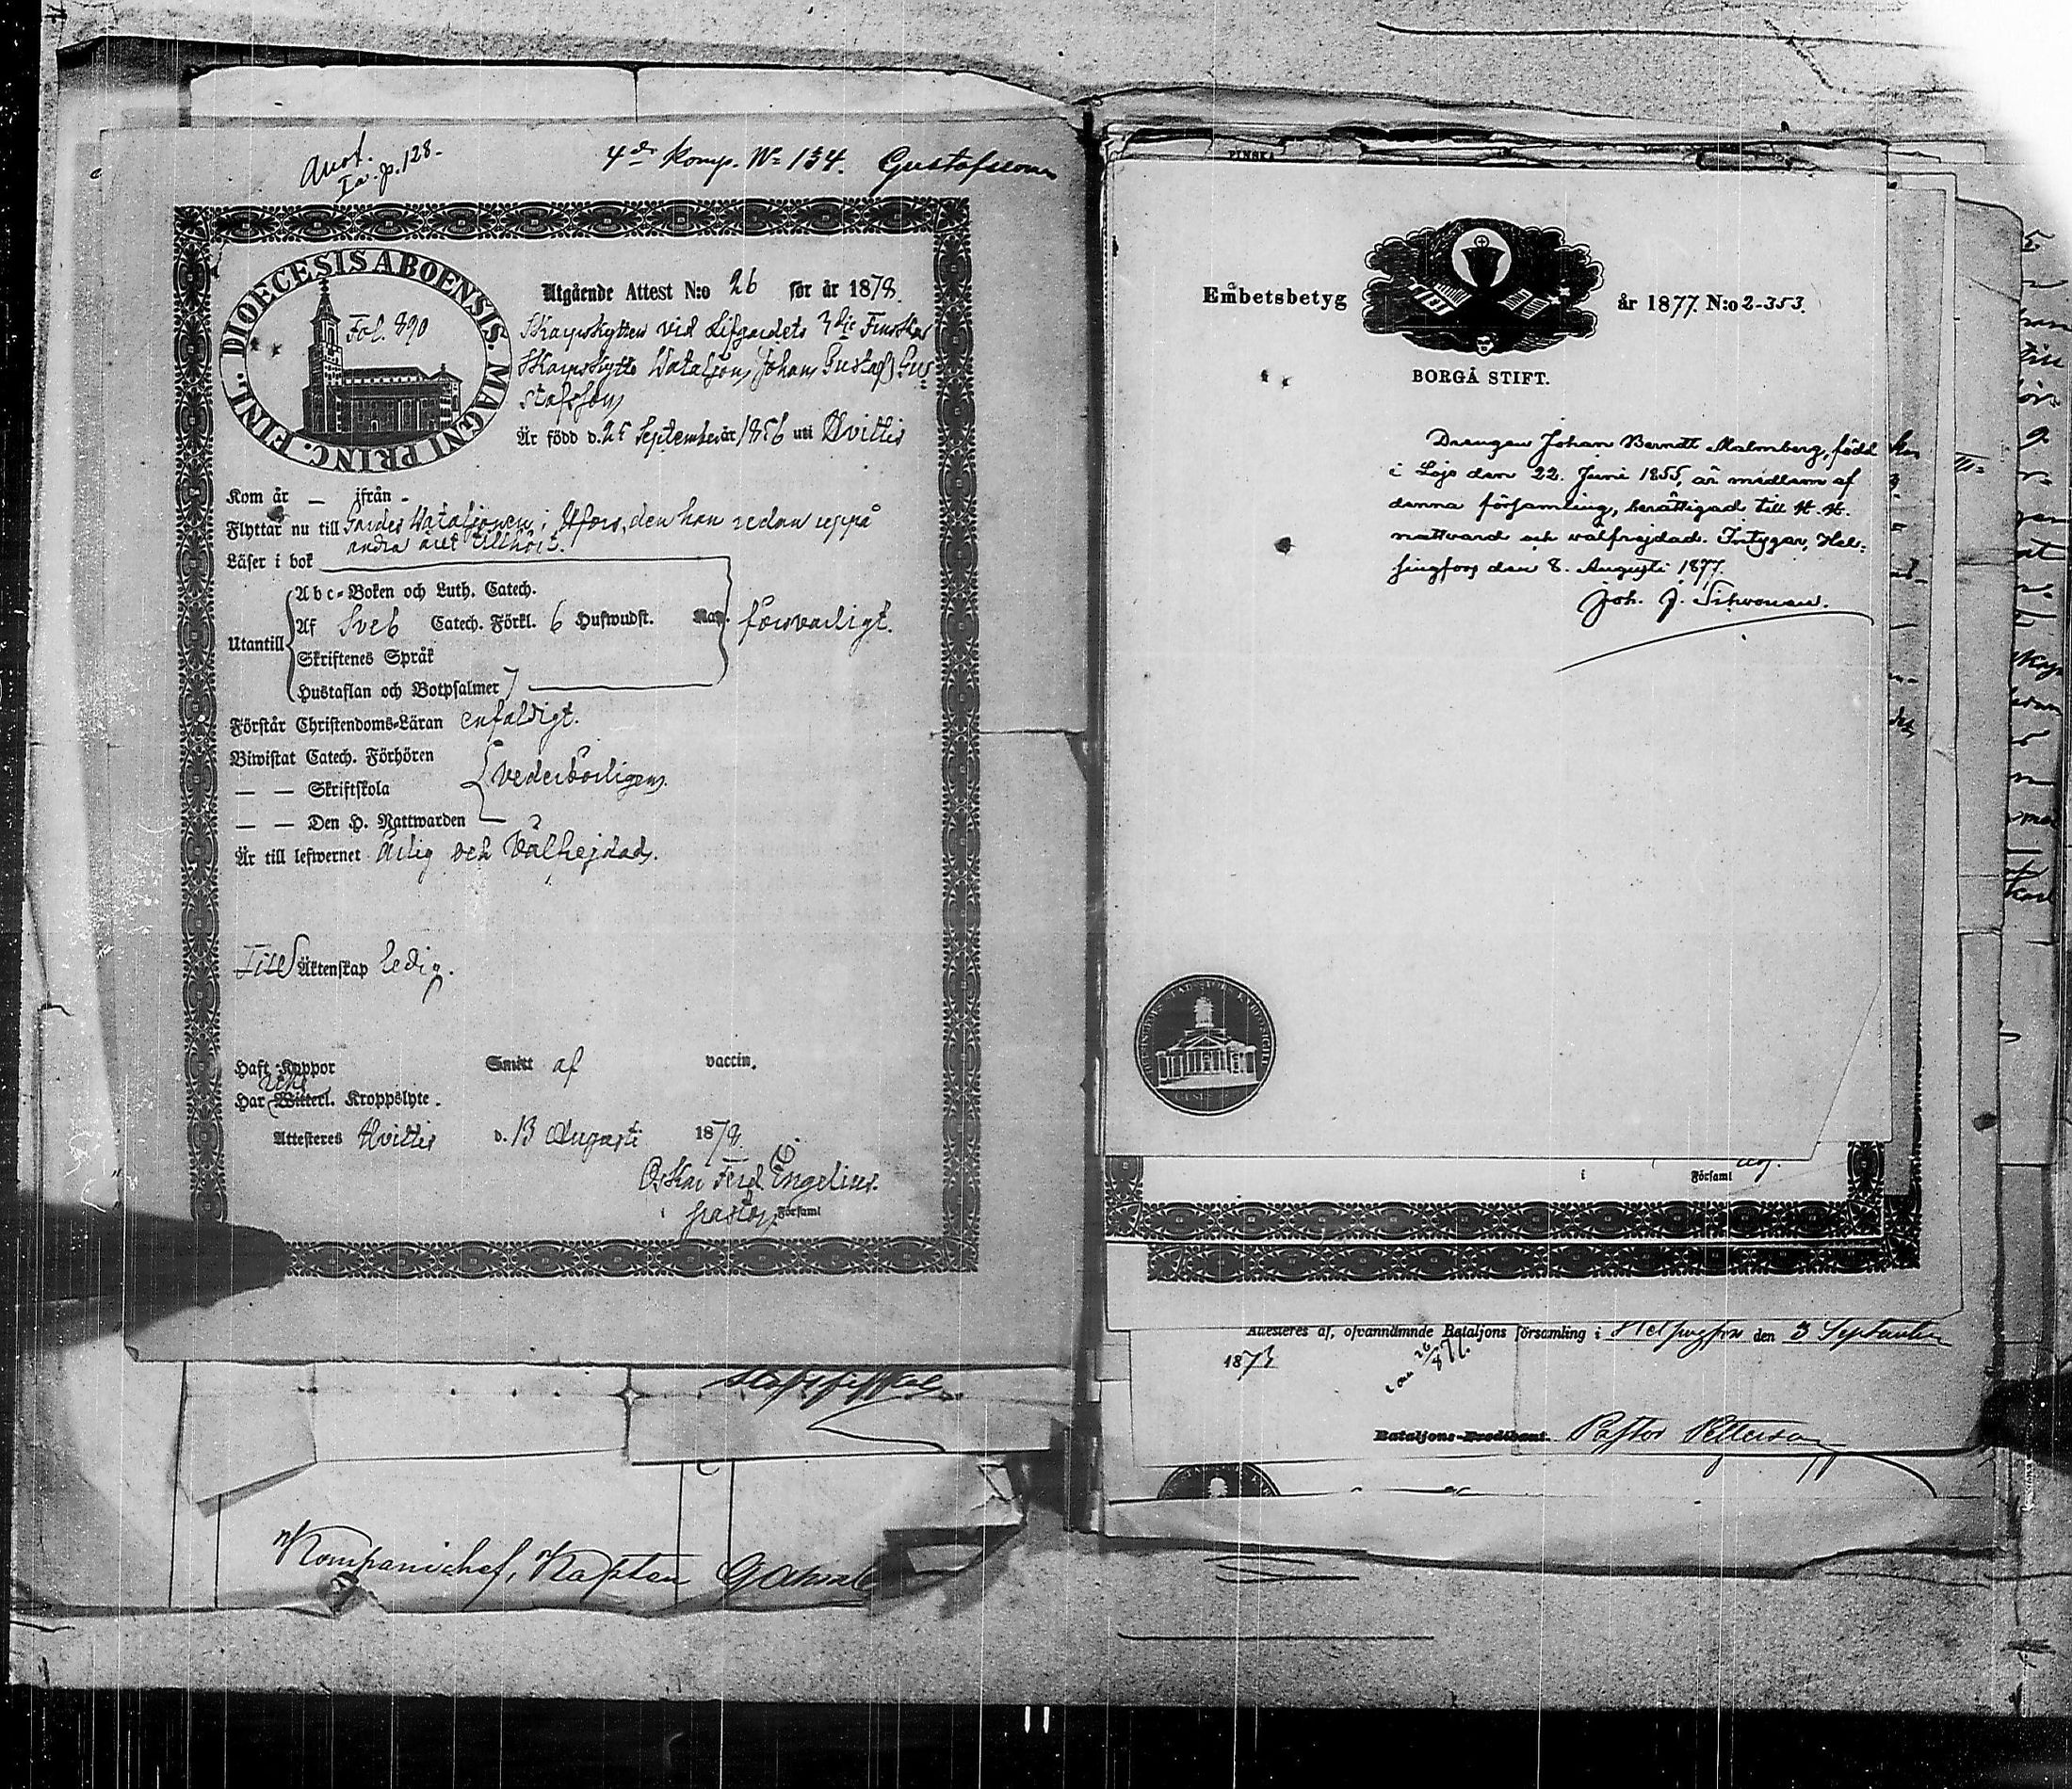 Anot.
Ia. p. 128.
4de Komp. No 134. Gustafsson
DIOECESIS ABOENSIS. MAGNI PRINC. FINL.
Fol. 890
Utgående Attest N:o 26 för år 1878.
Skarpskytten vid Lifgardets 3dje Finska
Skarpskytte Bataljon, Johan Gustaf Gus-
tafsson
Är född d. 25 September år 1856 uti Hvittis
Kom år — ifrån -
Flyttar nu till Gardes Bataljonen i Hfors, den han redan uppå
andra året tillhört.
Läser i bok
Abc-Boken och Luth. Catech.
Af Sveb Catech. Förkl. 6 Hufwudst.
försvarligt.
Utantill
Skriftenes Språk
Hustaflan och Botpsalmer 7
Förstår Christendoms-Läran enfaldigt.
Biwistat Catech. Förhören
— — Skriftskola
vederbörligen.
— — Den H. Nattwarden
Är till lefwernet Ärlig och Välfrejdad.
Till Äktenskap ledig.
Haft Koppor Smitt af vaccin.
icke
Har Witterl. Kroppslyte.
Attesteras Hvittis d. 13 Augusti 1878.
Oskar Ferd. Engelius.
i pastor Församl
Kompanichef, Kapten
PINSKA
Embetsbetyg år 1877. N:o 2-353.
BORGÅ STIFT.
Drengen Johan Berndt Malmberg, född
i Lojo den 22. Juni 1855, är medlem af
denna församling, berättigad till H. H.
nattvard och välfrejdad. Intygar, Hel-
singfors den 8. Augusti 1877.
Joh. J.
i Församl
Attesteres af, ofvannämnde Bataljons församling i Helsingfors den 3 September
187
Bataljons-Predikant. Pastor Petterson